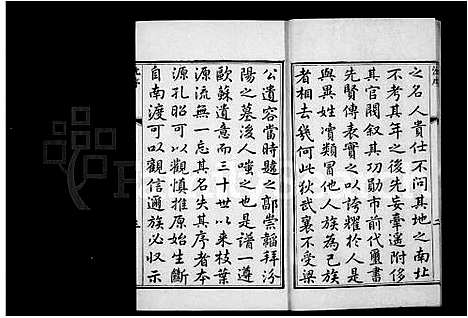 之名人貴仕不問其地之南北
不考其年之後先妄牽遥附侈
其官閥叙其功勛市前代璽書
先賢傳表實之以誇耀於人是
與異姓貿類冒他人族為己族
者相去幾何此狄武襄不受梁
公遺容當時韙之郭崇韜拜汾
陽之墓後人嗤之也是譜一遵
歐蘇遺意而三十世以来枝葉
源流無一忘其名失其序者本
源孔昭可以觀慎推原始生斷
自南渡可以觀信通族必収示